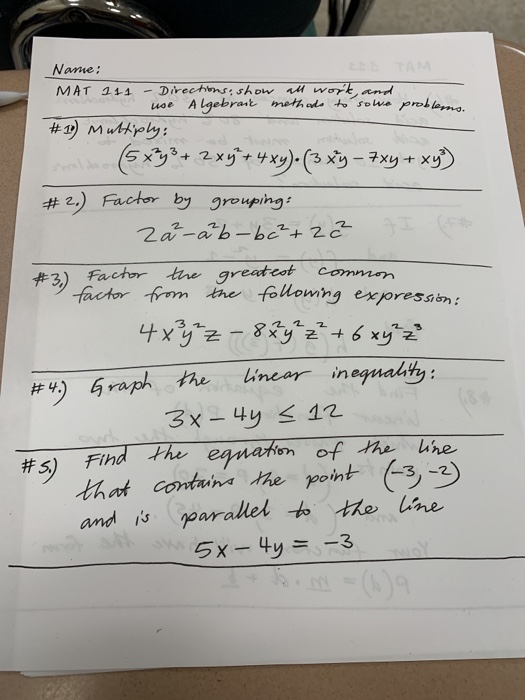 Name:
MAT 111 - Directions: show all work, and
use Algebraic methods to solve problems.
#1) Multiply:
(5x²y³ + 2xy² + 4xy)·(3x²y - 7xy + xy³)
#2.) Factor by grouping:
2a² - a²b - bc² + 2c²
#3.) Factor the greatest common
factor from the following expression:
4x³y²z - 8x²y²z² + 6xy²z³
#4.) Graph the linear inequality:
3x - 4y ≤ 12
#5.) Find the equation of the line
that contains the point (-3, -2)
and is parallel to the line
5x - 4y = -3